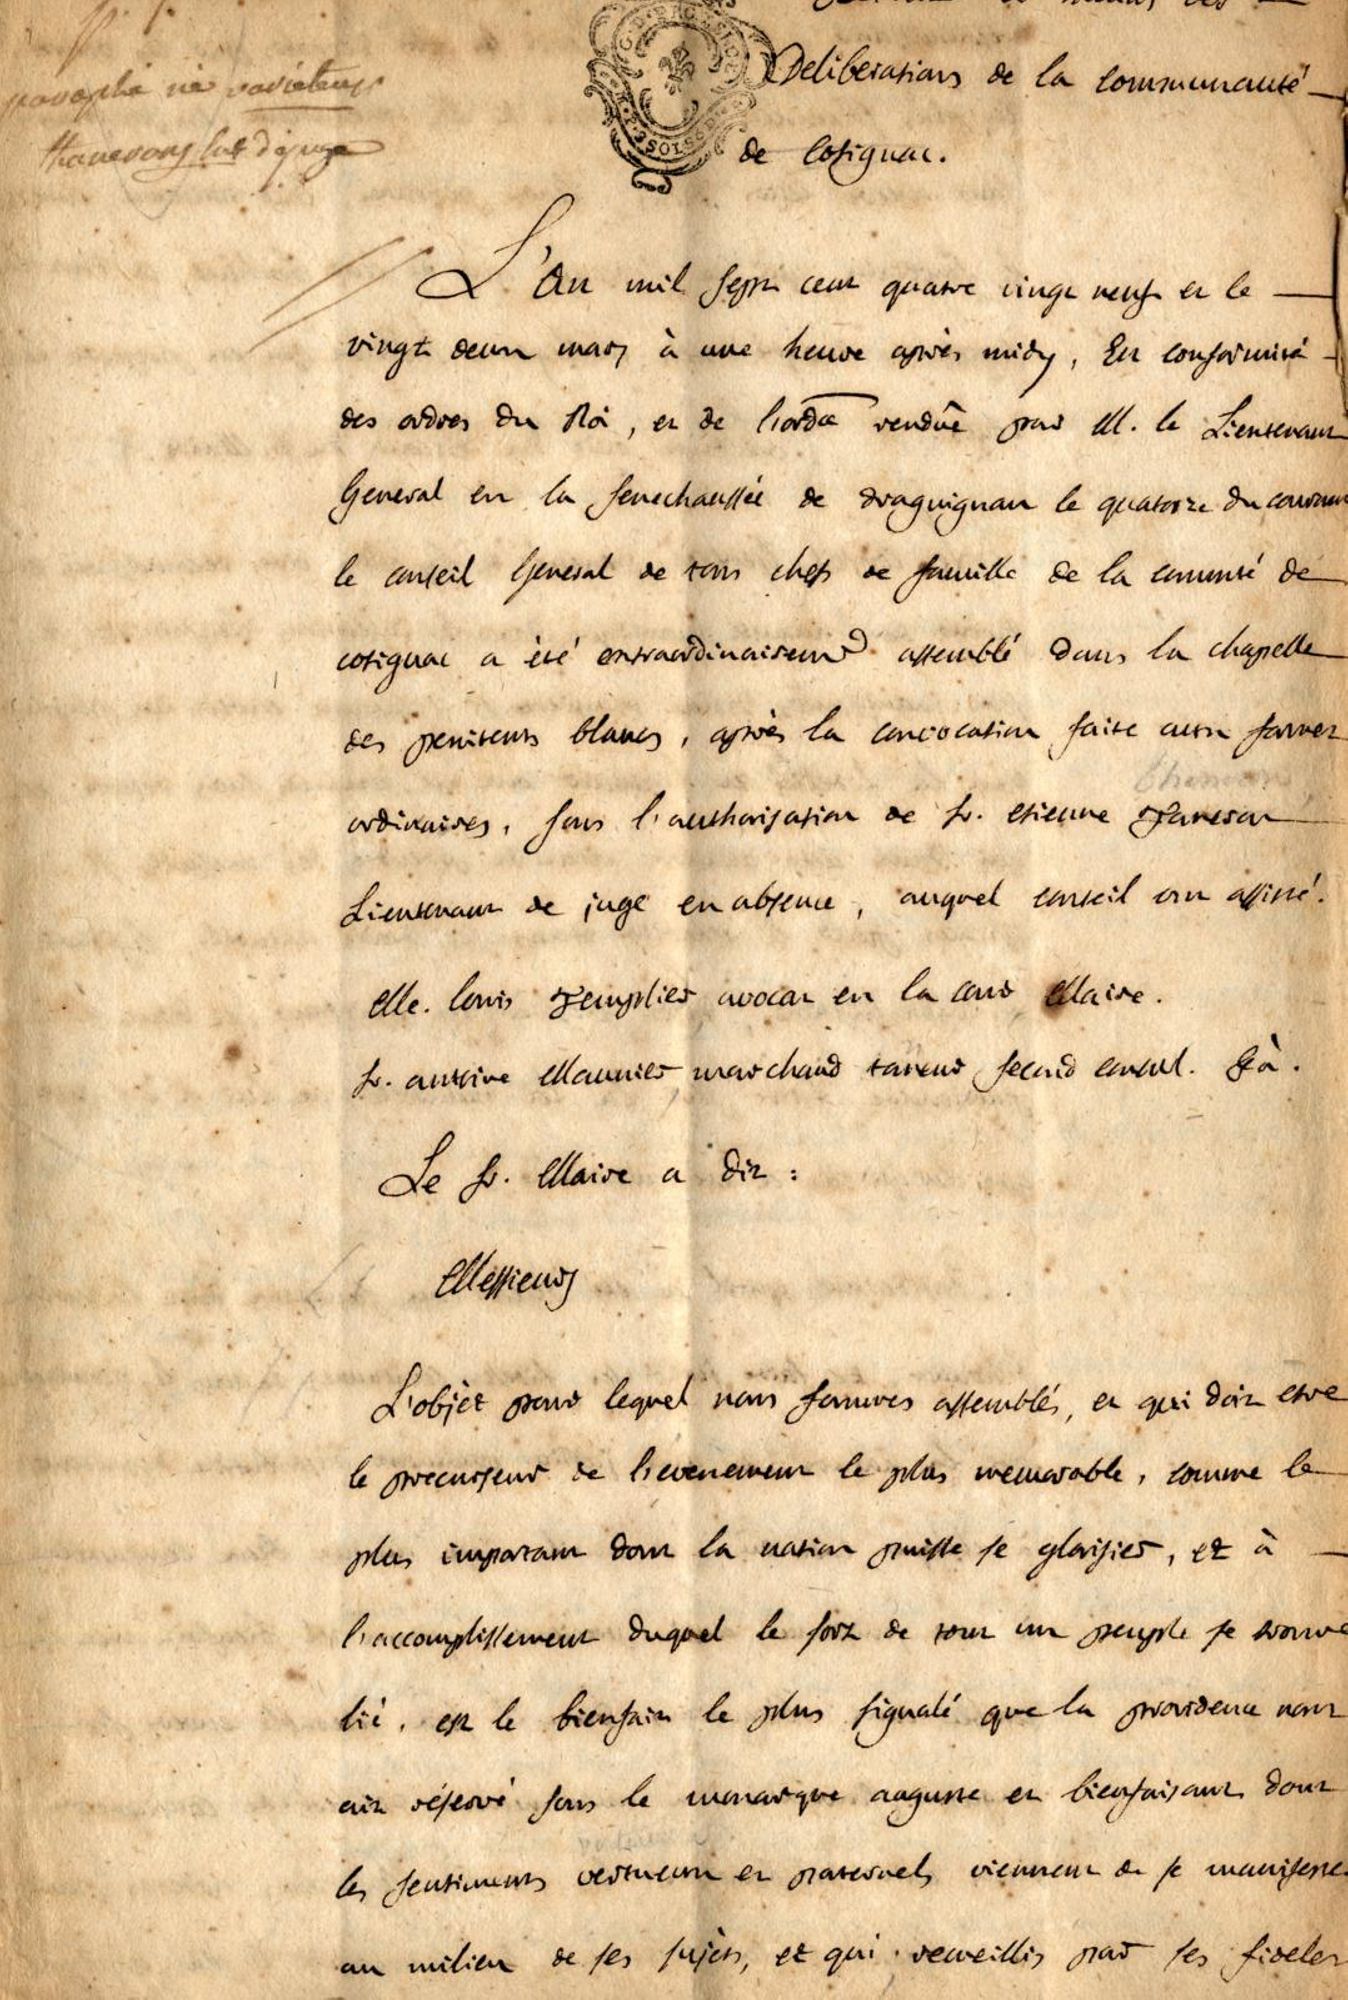 paraphé ne varietur
Deliberations de la communauté
de Cotignac.
L'An mil sept cent quatre vingt neuf et le
vingt deux mars à une heure après midy, En conformité
des ordres du Roi, et de l'ordce rendüe par M. le Lieutenant
General en la senechaussée de draguignan le quatorze du courant
le conseil General de tous chefs de famille de la commté de
cotignac a été extraordinairemt assemblé dans la chapelle
des penitents blancs, après la convocation faite aux formes
ordinaires, sous l'authorisation de sr. etienne
Lieutenant de juge en absence, auquel conseil ont assisté.
Me. louis Templier avocat en la cour Maire.
sr. antoine Maunier marchand taneur second consul. &a.
Le sr. Maire a dit :
Messieurs
L'objet pour lequel nous sommes assemblés, et qui doit etre
le precurseur de l'evenement le plus memorable, comme le
plus important dont la nation puisse se glorifier, et à
l'accomplissement duquel le sort de tout un peuple se trouve
lié, est le bienfait le plus signalé que la providence nous
ait réservé sous le monarque auguste et bienfaisant dont
les sentiments vertueux et paternels viennent de se manifester
au milieu de ses sujets, et qui recueillis par ses fideles